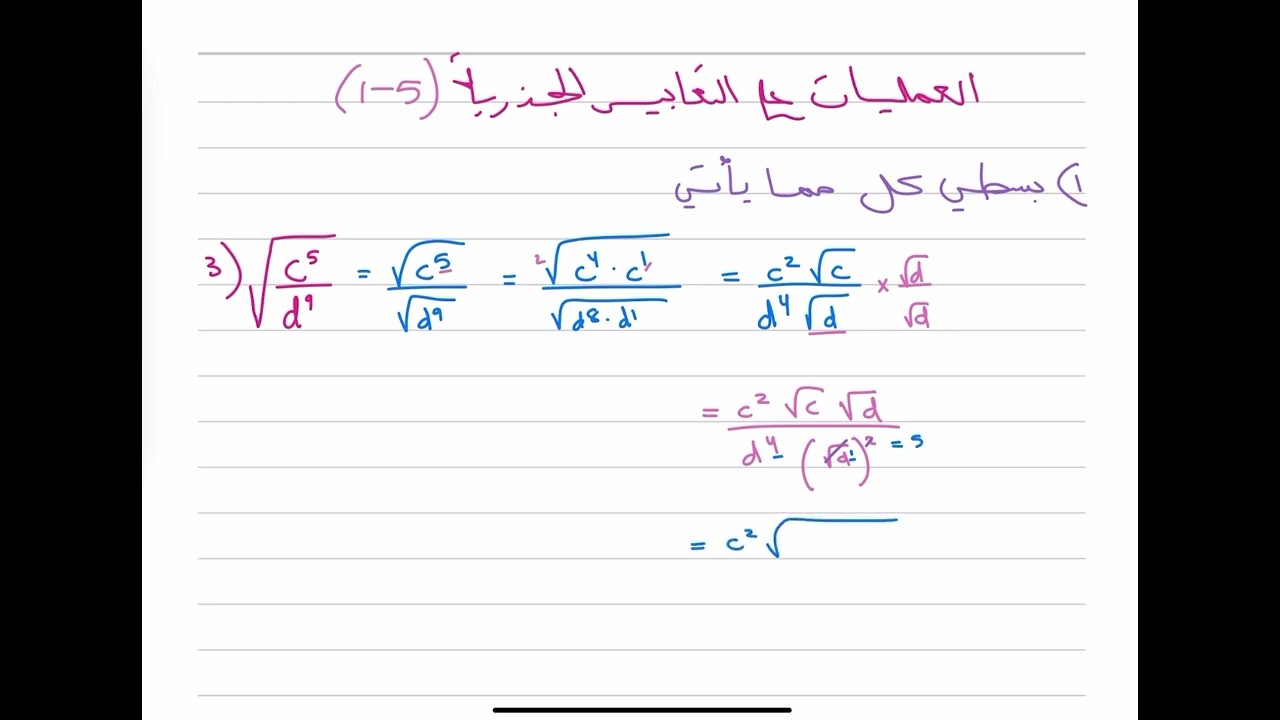 العمليات على التعابير الجذرية (1-5)
1) بسطي كل مما يأتي
3) √(c⁵/d⁹) = √c⁵/√d⁹ = ²√(c⁴ · c¹)/√(d⁸ · d¹) = c²√c/d⁴√d × √d/√d
= c² √c √d / d⁴ (√d¹)² = 5
= c² √